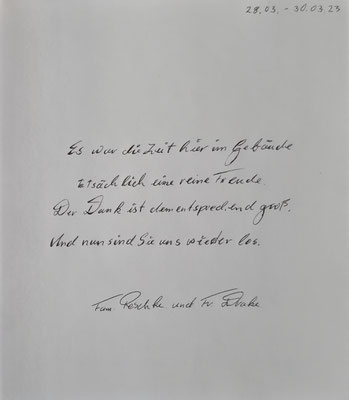 28.03. - 30.03 23
Es war die Zeit hier im Gebäude
tatsächlich eine reine Freude.
Der Dank ist dementsprechend groß.
Und nun sind Sie uns wieder los.
Fam. Peschke und Fr. Drake